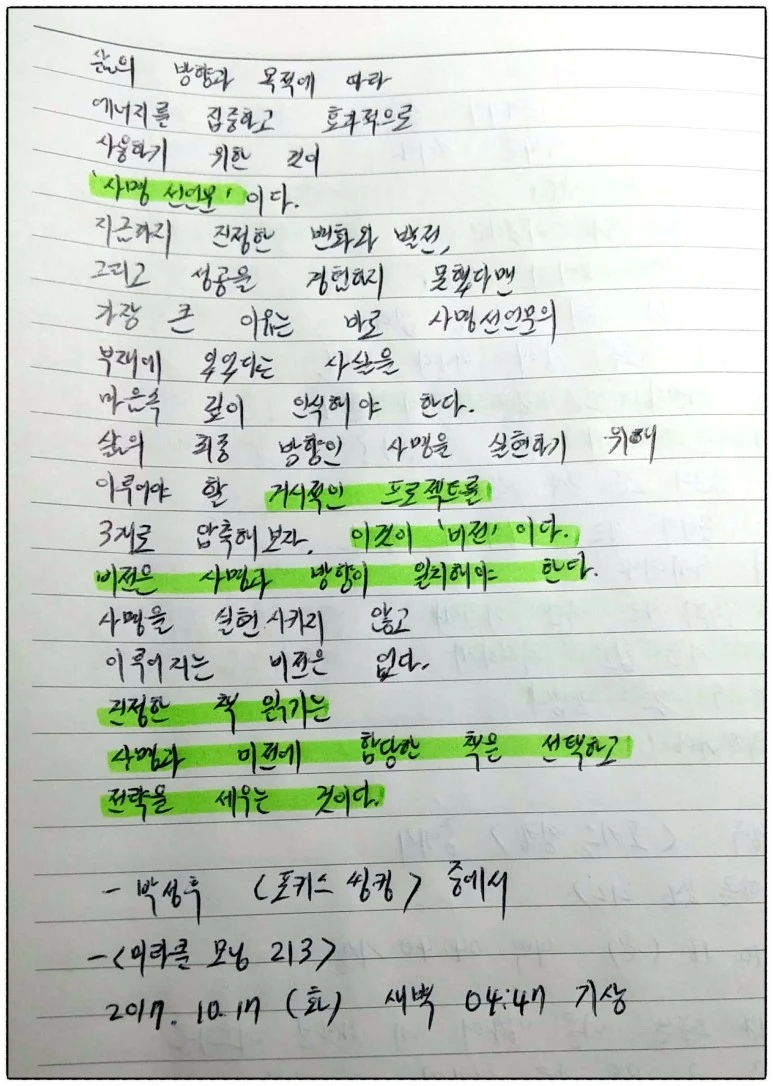 삶의 방향과 목적에 따라
에너지를 집중하고 효과적으로
사용하기 위한 것이
'사명 선언문' 이다.
지금까지 진정한 변화와 발전,
그리고 성공을 경험하지 못했다면
가장 큰 이유는 바로 사명선언문의
부재에 있었다는 사실을
마음속 깊이 인식해야 한다.
삶의 최종 방향인 사명을 실현하기 위해
이루어야 할 거시적인 프로젝트를
3개로 압축해보라. 이것이 '비전'이다.
비전은 사명과 방향이 일치해야 한다.
사명을 실현시키지 않고
이루어지는 비전은 없다.
진정한 책 읽기는
사명과 비전에 합당한 책을 선택하고
전략을 세우는 것이다.
- 박성후 <포커스 씽킹> 중에서
- <미라클 모닝 213>
2017. 10. 17 (화) 새벽 04:47 기상